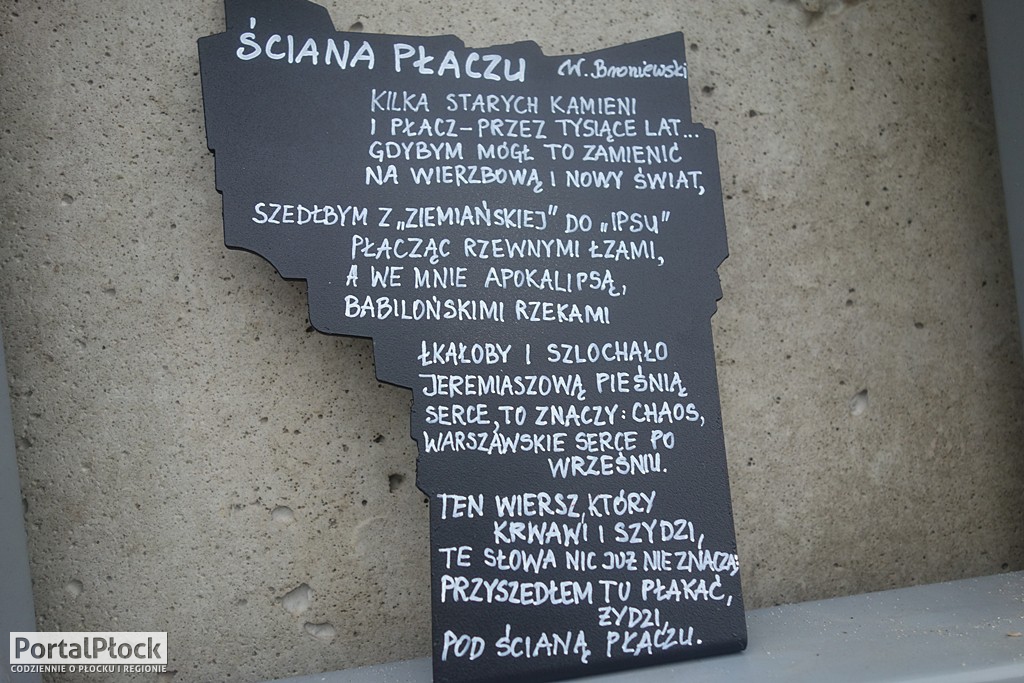 ŚCIANA PŁACZU W. Broniewski
KILKA STARYCH KAMIENI
I PŁACZ - PRZEZ TYSIĄCE LAT...
GDYBYM MÓGŁ TO ZAMIENIĆ
NA WIERZBOWĄ I NOWY ŚWIAT,
SZEDŁBYM Z „ZIEMIAŃSKIEJ" DO „IPSU"
PŁACZĄC RZEWNYMI ŁZAMI,
A WE MNIE APOKALIPSĄ,
BABILOŃSKIMI RZEKAMI
ŁKAŁOBY I SZLOCHAŁO
JEREMIASZOWĄ PIEŚNIĄ
SERCE, TO ZNACZY: CHAOS,
WARSZAWSKIE SERCE PO
WRZEŚNIU.
TEN WIERSZ, KTÓRY
KRWAWI I SZYDZI,
TE SŁOWA NIC JUŻ NIE ZNACZĄ;
PRZYSZEDŁEM TU PŁAKAĆ,
ŻYDZI,
POD ŚCIANĄ PŁACZU.
PortalPłock
CODZIENNIE O PŁOCKU I REGIONIE